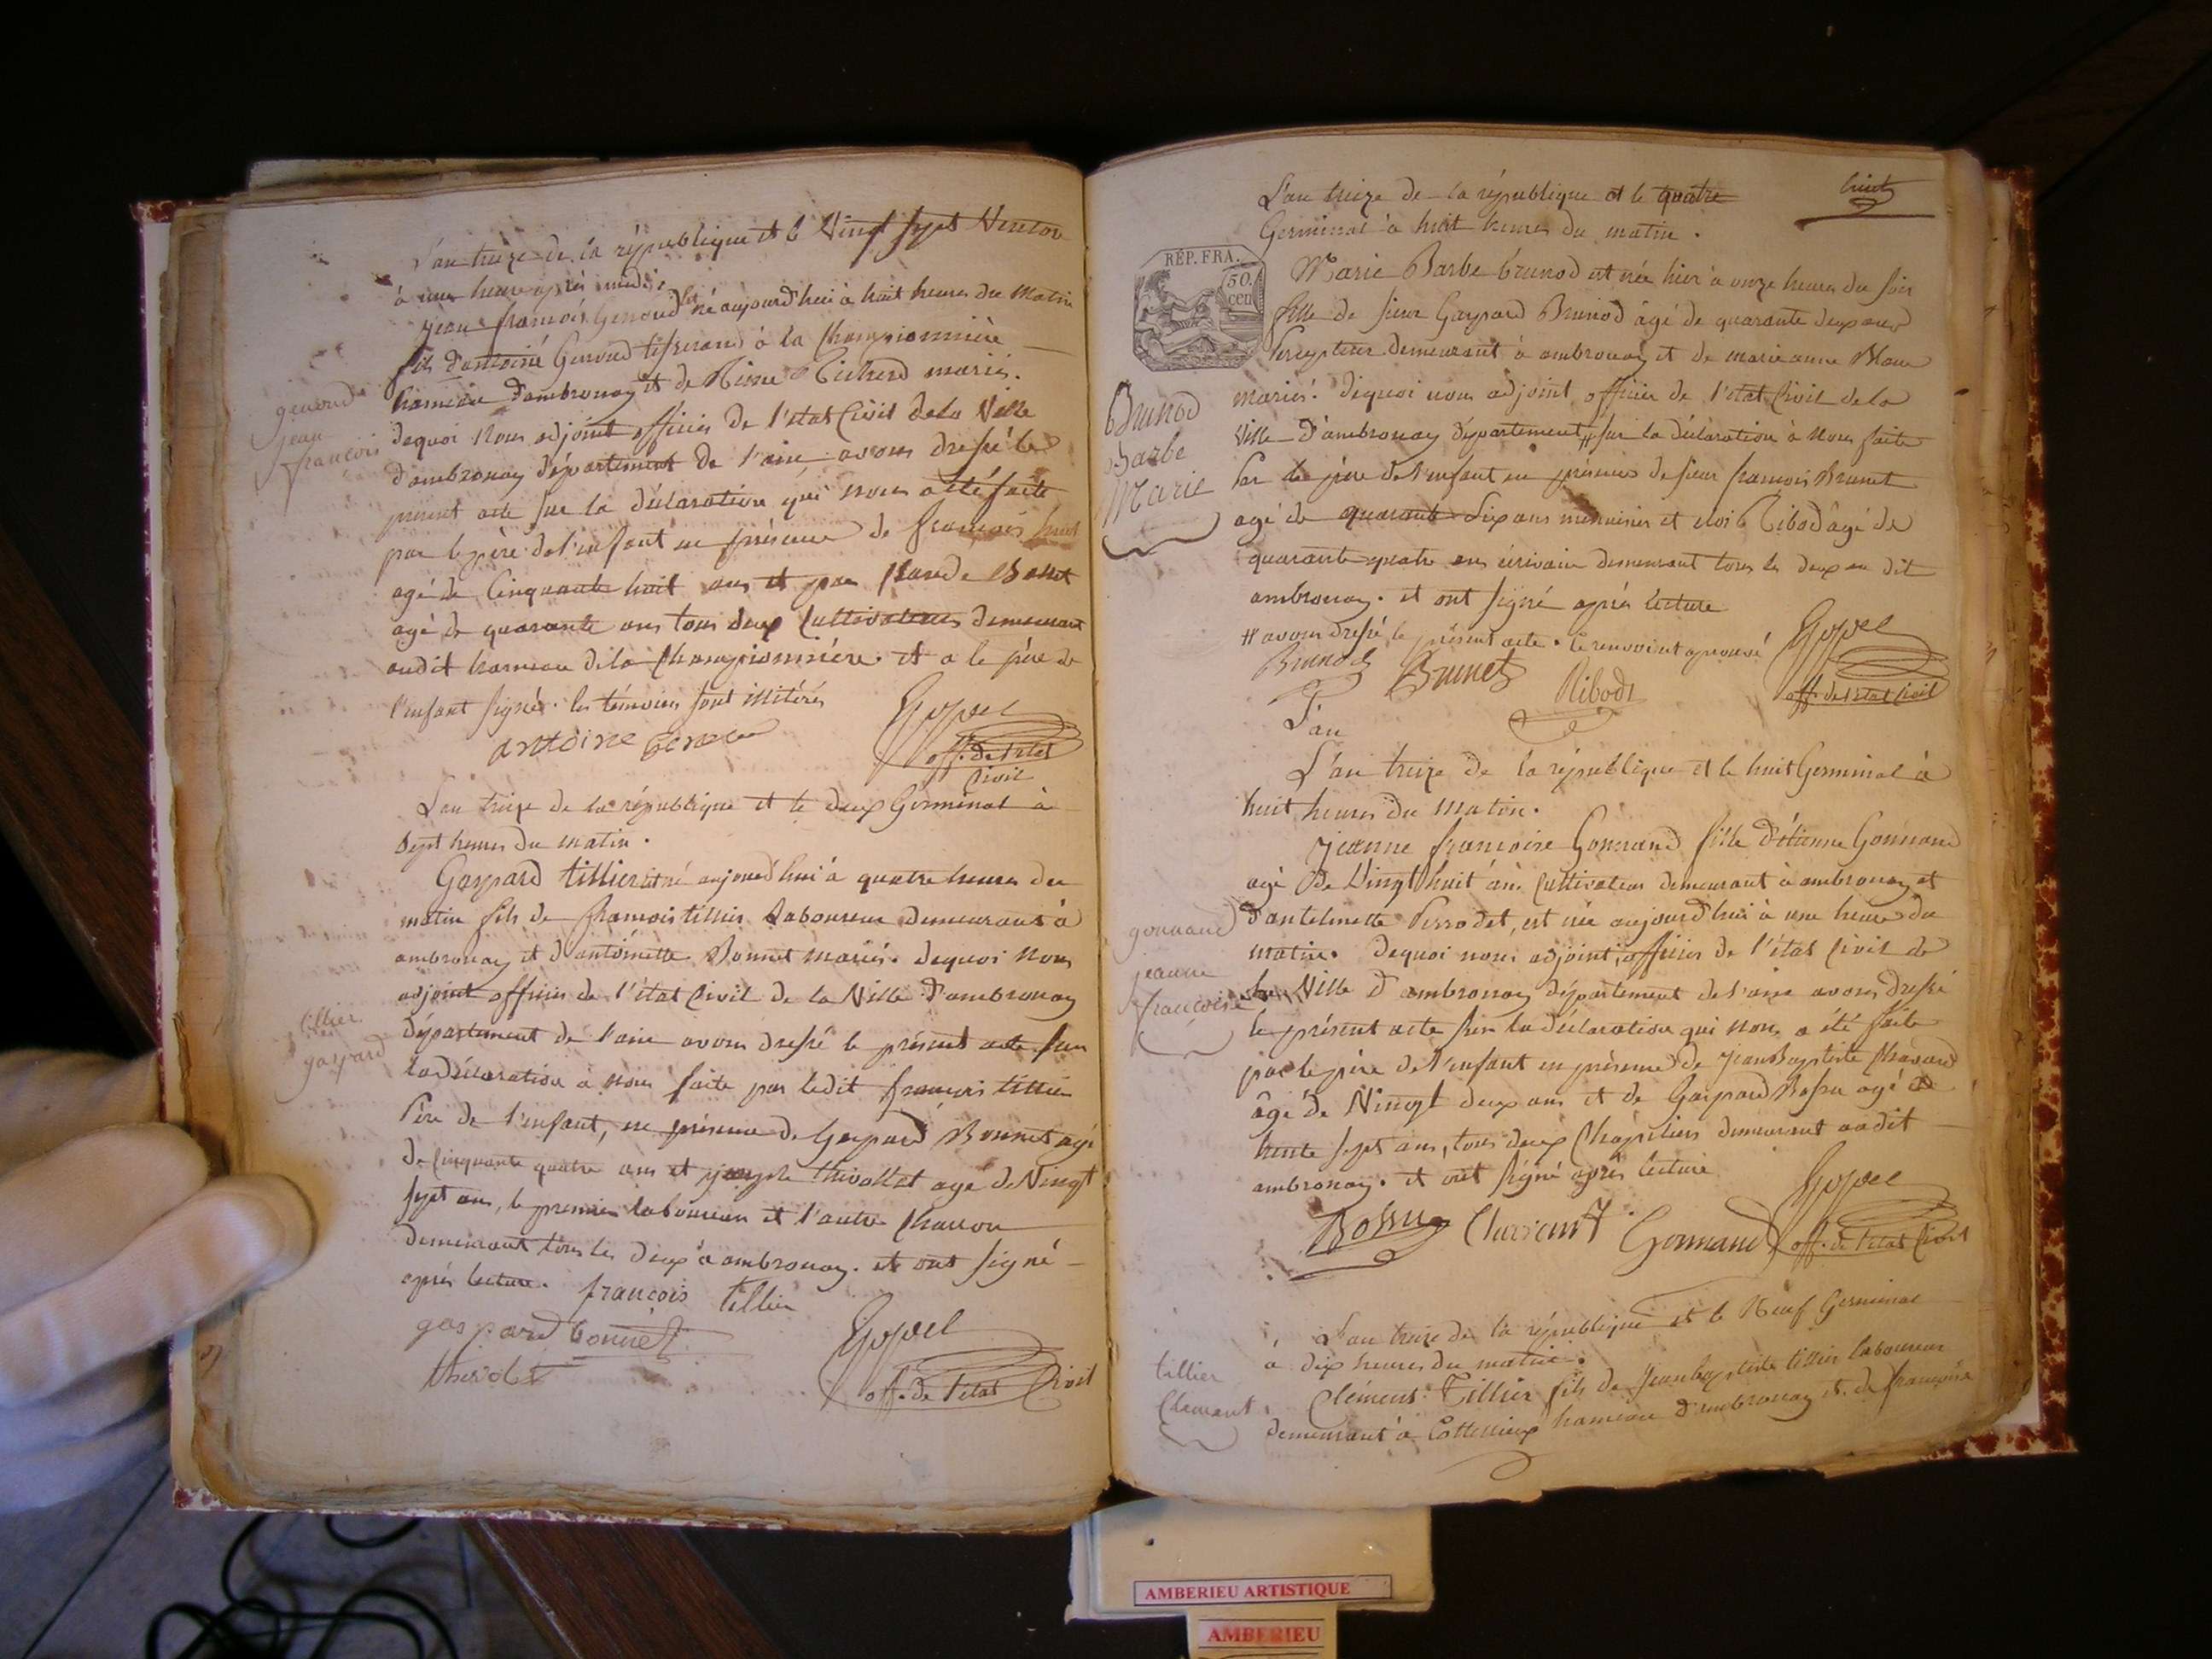 L'an treize de la république et le Vingt sept Ventose
à une heure après midi.
jean françois Genoud est né aujourd'hui à huit heures du matin
fils d'antoine Genoud tisserand à la Championnière
hameau d'ambronay et de Richerd mariés.
genoud
jean
françois
dequoi Nous adjoint officier de l'état Civil dela Ville
d'ambronay département de l'ain avons dressé le
présent acte sur la déclaration qui nous a été faite
par le père de l'enfant en présence de françois
agé de Cinquante huit ans et par Claude Bonnet
agé de quarante ans tous deux Cultivateurs demeurant
audit hameau dela Championnière. et a le père de
l'enfant signé. les témoins sont illitérés
antoine
Goppel
off. de l'état
Civil
L'an treize de la république et le deux Germinal à
sept heures du matin.
Gaspard tillier est né aujourd'hui à quatre heures du
matin fils de francois tillier Laboureur demeurant à
ambronay et d'antoinette Bonnet mariés. dequoi Nous
adjoint officier de l'état Civil de la Ville d'ambronay
tillier
gaspard
département de l'ain avons dressé le présent acte sur
la déclaration à nous faite par ledit francois tillier
Père de l'enfant, en présence de Gaspard Bonnet agé
de cinquante quatre ans et joseph thivollet agé de Vingt
sept ans, le premier laboureur et l'autre Charron
demeurant tous les deux à ambronay. et ont signé
après lecture. françois tillier
gaspard bonnet
Goppel
off. de l'état Civil
L'an treize de la république et le quatre
Germinal à huit heures du matin.
RÉP. FRA.
50.
cen
Marie Barbe brunod est née hier à onze heures du soir
fille de sieur Gaspard Brunod âgé de quarante deux ans
Percepteur demeurant à ambronay et de marie anne Blanc
mariés. dequoi nous adjoint officier de l'état Civil de la
Brunod
Barbe
Marie
Ville d'ambronay département # sur la déclaration à nous faite
Par le père de l'enfant en présence de sieur françois Brunet
agé de quarante six ans menuisier et eloi Ribod âgé de
quarante quatre ans écrivain demeurant tous les deux au dit
ambronay. et ont signé après lecture
# avons dressé le présent acte. le renvoi est aprouvé
Brunod Brunet Ribod
Goppel
off. de l'état Civil
L'an
L'an treize de la république et le huit Germinal à
huit heures du matin.
jeanne francoise Gonnand fille d'étienne Gonnand
agé de Vingt huit ans Cultivateur demeurant à ambronay et
d'antelmette Perrodet, est née aujourd'hui à une heure du
gonnand
jeanne
françoise
matin. dequoi nous adjoint, officier de l'état Civil de
la Ville d'ambronay département de l'ain avons dressé
le présent acte sur la déclaration qui nous a été faite
par le père de l'enfant en présence de jean Baptiste Chavand
âgé de Vingt deux ans et de Gaspard Bossu agé de
trente sept ans, tous deux Chapeliers demeurant audit
ambronay. et ont signé après lecture
Bossu Gonnand
Goppel
off. de l'état Civil
L'an treize de la république et le Neuf Germinal
à dix heures du matin.
tillier
Clement
Clément Tillier fils de jean baptiste tillier laboureur
demeurant à Cottessieux hameau d'ambronay et de françoise
AMBERIEU ARTISTIQUE
AMBERIEU